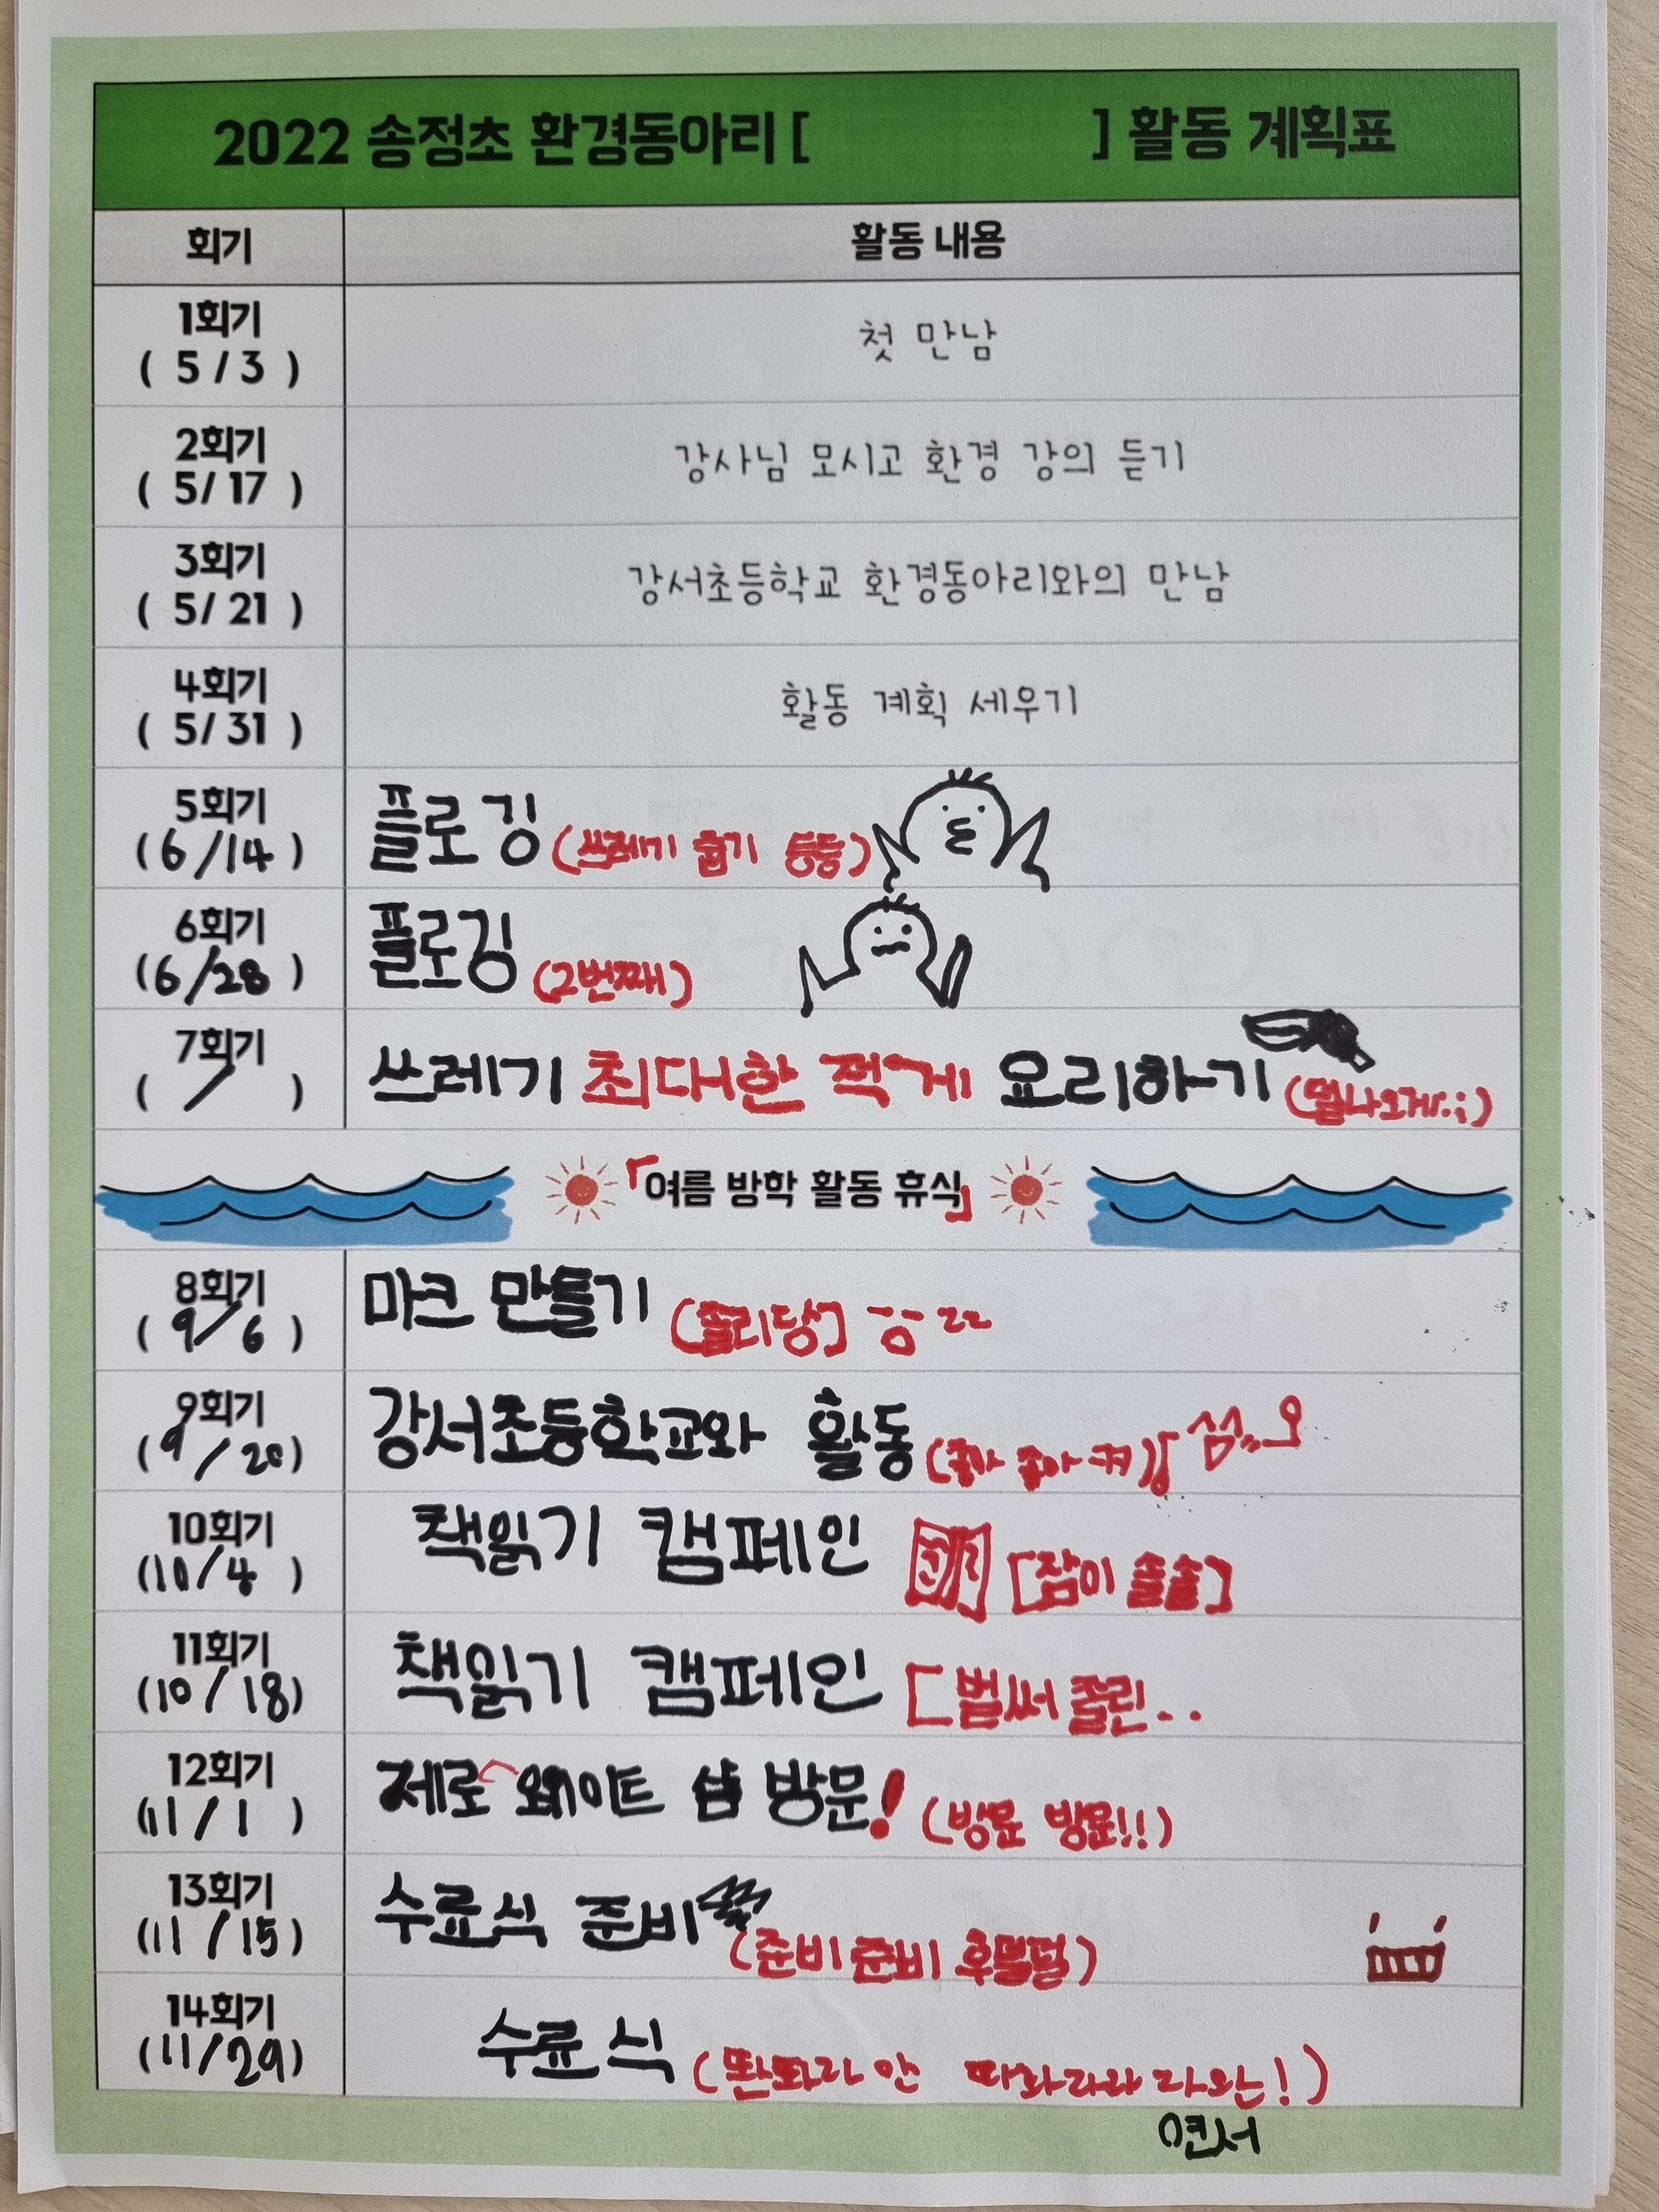 2022 송정초 환경동아리 [ ] 활동 계획표
회기 활동 내용
1회기
( 5 / 3 ) 첫 만남
2회기
( 5/ 17 ) 강사님 모시고 환경 강의 듣기
3회기
( 5/ 21 ) 강서초등학교 환경동아리와의 만남
4회기
( 5/ 31 ) 활동 계획 세우기
5회기
(6/14) 플로깅 (쓰레기 줍기 등등)
6회기
(6/28) 플로깅 (2번째)
7회기
( / ) 쓰레기 최대한 적게 요리하기
「여름 방학 활동 휴식」
8회기
(9/6) 마크 만들기 (졸리당]
9회기
(9/20) 강서초등학교와 활동
10회기
(10/4) 책읽기 캠페인 [잠이 솔솔]
11회기
(10/18) 책읽기 캠페인 [벌써 졸린..
12회기
(11/1) 제로 웨이트 샵 방문! (방문 방문!!)
13회기
(11/15) 수료식 준비 (준비 준비 후덜덜)
14회기
(11/29) 수료식
연서